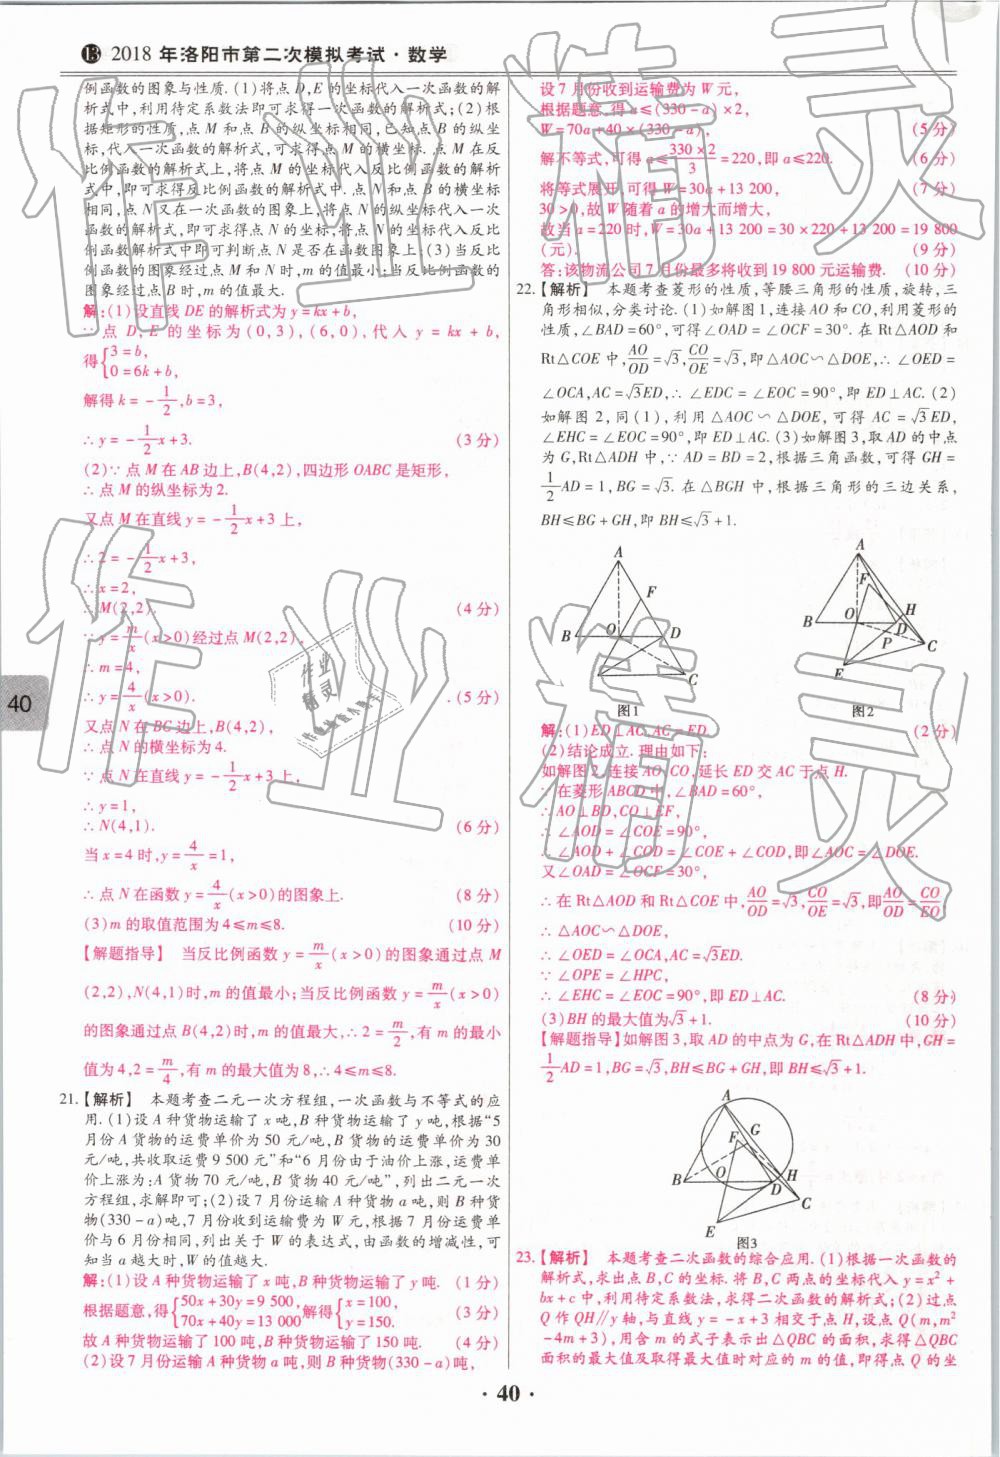 ⓭ 2018 年洛阳市第二次模拟考试·数学
例函数的图象与性质.(1)将点 D,E 的坐标代入一次函数的解
析式中,利用待定系数法即可求得一次函数的解析式;(2)根
据矩形的性质,点 M 和点 B 的纵坐标相同,已知点 B 的纵坐
标,代入一次函数的解析式,可求得点 M 的横坐标.点 M 在反
比例函数的解析式上,将点 M 的坐标代入反比例函数的解析
式中,即可求得反比例函数的解析式中.点 N 和点 B 的横坐标
相同,点 N 又在一次函数的图象上,将点 N 的纵坐标代入一次
函数的解析式,即可求得点 N 的坐标,将点 N 的坐标代入反比
例函数解析式中即可判断点 N 是否在函数图象上;(3)当反比
例函数的图象经过点 M 和 N 时,m 的值最小;当反比例函数的
图象经过点 B 时,m 的值最大.
解:(1)设直线 DE 的解析式为 y=kx+b,
∵点 D,E 的坐标为(0,3),(6,0),代入 y=kx+b,
得{3=b, 0=6k+b,
解得 k=-1/2,b=3,
∴y=-1/2x+3. (3 分)
(2)∵点 M 在 AB 边上,B(4,2),四边形 OABC 是矩形,
∴点 M 的纵坐标为 2.
又点 M 在直线 y=-1/2x+3 上,
∴2=-1/2x+3,
∴x=2,
∴M(2,2). (4 分)
∵y=m/x(x>0)经过点 M(2,2),
∴m=4,
∴y=4/x(x>0). (5 分)
又点 N 在 BC 边上,B(4,2),
∴点 N 的横坐标为 4.
∵点 N 在直线 y=-1/2x+3 上,
∴y=1,
∴N(4,1). (6 分)
当 x=4 时,y=4/x=1,
∴点 N 在函数 y=4/x(x>0)的图象上. (8 分)
(3)m 的取值范围为 4≤m≤8. (10 分)
【解题指导】 当反比例函数 y=m/x(x>0)的图象通过点 M
(2,2),N(4,1)时,m 的值最小;当反比例函数 y=m/x(x>0)
的图象通过点 B(4,2)时,m 的值最大,∴2=m/2,有 m 的最小
值为 4,2=m/4,有 m 的最大值为 8,∴4≤m≤8.
21.【解析】 本题考查二元一次方程组,一次函数与不等式的应
用.(1)设 A 种货物运输了 x 吨,B 种货物运输了 y 吨,根据“5
月份 A 货物的运费单价为 50 元/吨,B 货物的运费单价为 30
元/吨,共收取运费 9 500 元”和“6 月份由于油价上涨,运费单
价上涨为:A 货物 70 元/吨,B 货物 40 元/吨”,列出二元一次
方程组,求解即可;(2)设 7 月份运输 A 种货物 a 吨,则 B 种货
物(330-a)吨,7 月份收到运输费为 W 元,根据 7 月份运费单
价与 6 月份相同,列出关于 W 的表达式,由函数的增减性,可
知当 a 越大时,W 的值越大.
解:(1)设 A 种货物运输了 x 吨,B 种货物运输了 y 吨. (1 分)
根据题意,得{50x+30y=9 500, 70x+40y=13 000 解得{x=100, y=150. (3 分)
故 A 种货物运输了 100 吨,B 种货物运输了 150 吨. (4 分)
(2)设 7 月份运输 A 种货物 a 吨,则 B 种货物(330-a)吨,
设 7 月份收到运输费为 W 元,
根据题意,得 a≤(330-a)×2,
W=70a+40×(330-a), (5 分)
解不等式,可得 a≤330×2/3=220,即 a≤220. (6 分)
将等式展开,可得 W=30a+13 200, (7 分)
30>0,故 W 随着 a 的增大而增大,
故当 a=220 时,W=30a+13 200=30×220+13 200=19 800
(元). (9 分)
答:该物流公司 7 月份最多将收到 19 800 元运输费. (10 分)
22.【解析】 本题考查菱形的性质,等腰三角形的性质,旋转,三
角形相似,分类讨论.(1)如解图 1,连接 AO 和 CO,利用菱形的
性质,∠BAD=60°,可得∠OAD=∠OCF=30°.在 Rt△AOD 和
Rt△COE 中,AO/OD=√3,CO/OE=√3,即△AOC∽△DOE,∴∠OED=
∠OCA,AC=√3ED,∴∠EDC=∠EOC=90°,即 ED⊥AC.(2)
如解图 2,同(1),利用△AOC∽△DOE,可得 AC=√3ED,
∠EHC=∠EOC=90°,即 ED⊥AG.(3)如解图 3,取 AD 的中点
为 G,Rt△ADH 中,∵AD=BD=2,根据三角函数,可得 GH=
1/2AD=1,BG=√3.在△BGH 中,根据三角形的三边关系,
BH≤BG+GH,即 BH≤√3+1.
A F B O D C 图1
A F O H B D P C E 图2
解:(1)ED⊥AC,AC=√3ED. (2 分)
(2)结论成立.理由如下:
如解图 2,连接 AO,CO,延长 ED 交 AC 于点 H.
∵在菱形 ABCD 中,∠BAD=60°,
∴AO⊥BD,CO⊥EF,
∴∠AOD=∠COE=90°,
∴∠AOD+∠COD=∠COE+∠COD,即∠AOC=∠DOE.
又∠OAD=∠OCF=30°,
∴在 Rt△AOD 和 Rt△COE 中,AO/OD=√3,CO/OE=√3,即AO/OD=CO/EO,
∴△AOC∽△DOE,
∴∠OED=∠OCA,AC=√3ED.
∵∠OPE=∠HPC,
∴∠EHC=∠EOC=90°,即 ED⊥AC. (8 分)
(3)BH 的最大值为√3+1. (10 分)
【解题指导】如解图 3,取 AD 的中点为 G,在 Rt△ADH 中,GH=
1/2AD=1,BG=√3,BH≤BG+GH,即 BH≤√3+1.
A G F B O H D C E 图3
23.【解析】 本题考查二次函数的综合应用.(1)根据一次函数的
解析式,求出点 B,C 的坐标.将 B,C 两点的坐标代入 y=x²+
bx+c 中,利用待定系数法,求得二次函数的解析式;(2)过点
Q 作 QH∥y 轴,与直线 y=-x+3 相交于点 H,设点 Q(m,m²
-4m+3),用含 m 的式子表示出△QBC 的面积,求得△QBC
面积的最大值及取得最大值时对应的 m 的值,即得点 Q 的坐
40
· 40 ·
作业精灵
作业精灵